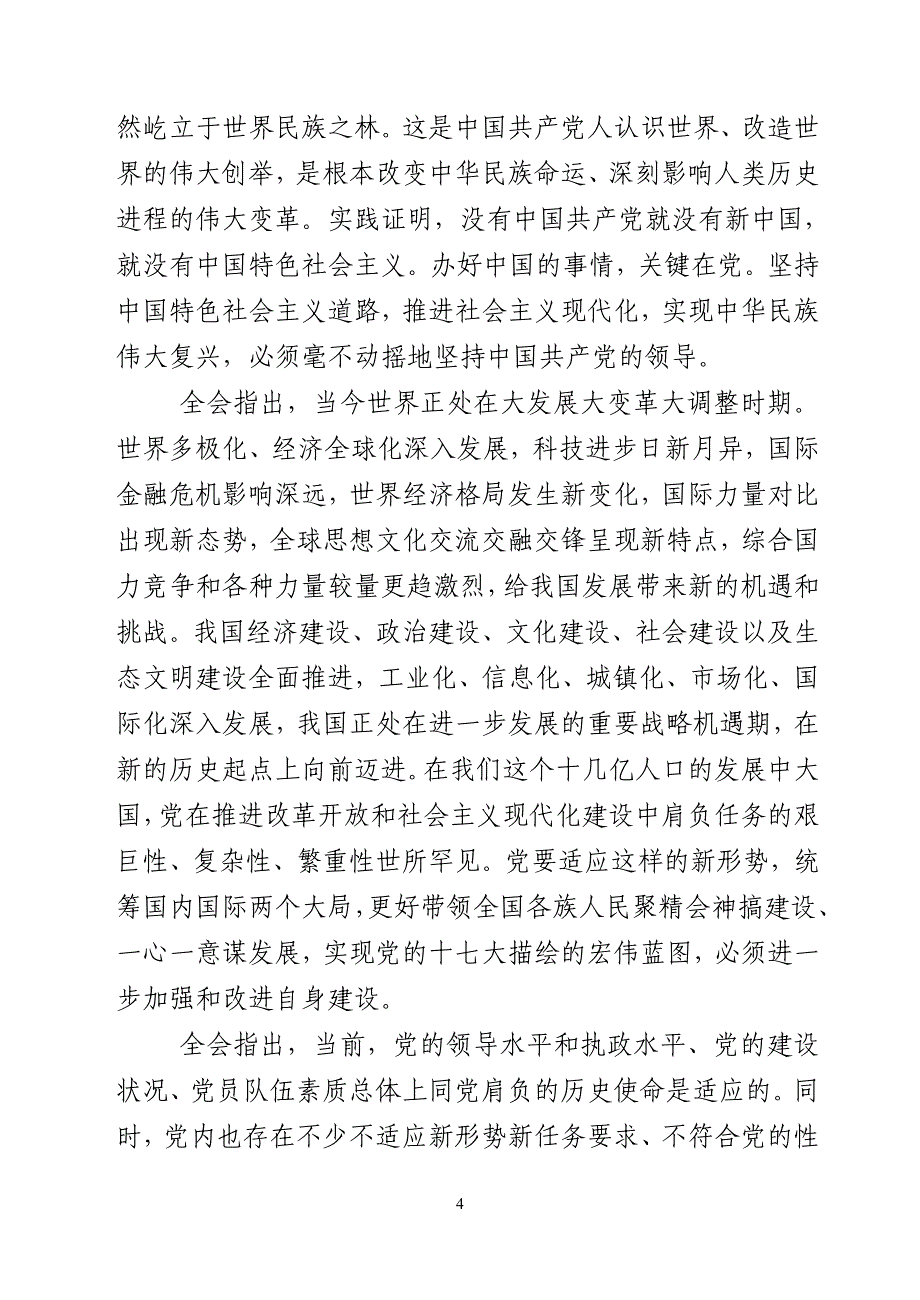 然屹立于世界民族之林。这是中国共产党人认识世界、改造世
界的伟大创举，是根本改变中华民族命运、深刻影响人类历史
进程的伟大变革。实践证明，没有中国共产党就没有新中国，
就没有中国特色社会主义。办好中国的事情，关键在党。坚持
中国特色社会主义道路，推进社会主义现代化，实现中华民族
伟大复兴，必须毫不动摇地坚持中国共产党的领导。
全会指出，当今世界正处在大发展大变革大调整时期。
世界多极化、经济全球化深入发展，科技进步日新月异，国际
金融危机影响深远，世界经济格局发生新变化，国际力量对比
出现新态势，全球思想文化交流交融交锋呈现新特点，综合国
力竞争和各种力量较量更趋激烈，给我国发展带来新的机遇和
挑战。我国经济建设、政治建设、文化建设、社会建设以及生
态文明建设全面推进，工业化、信息化、城镇化、市场化、国
际化深入发展，我国正处在进一步发展的重要战略机遇期，在
新的历史起点上向前迈进。在我们这个十几亿人口的发展中大
国，党在推进改革开放和社会主义现代化建设中肩负任务的艰
巨性、复杂性、繁重性世所罕见。党要适应这样的新形势，统
筹国内国际两个大局，更好带领全国各族人民聚精会神搞建设、
一心一意谋发展，实现党的十七大描绘的宏伟蓝图，必须进一
步加强和改进自身建设。
全会指出，当前，党的领导水平和执政水平、党的建设
状况、党员队伍素质总体上同党肩负的历史使命是适应的。同
时，党内也存在不少不适应新形势新任务要求、不符合党的性
4